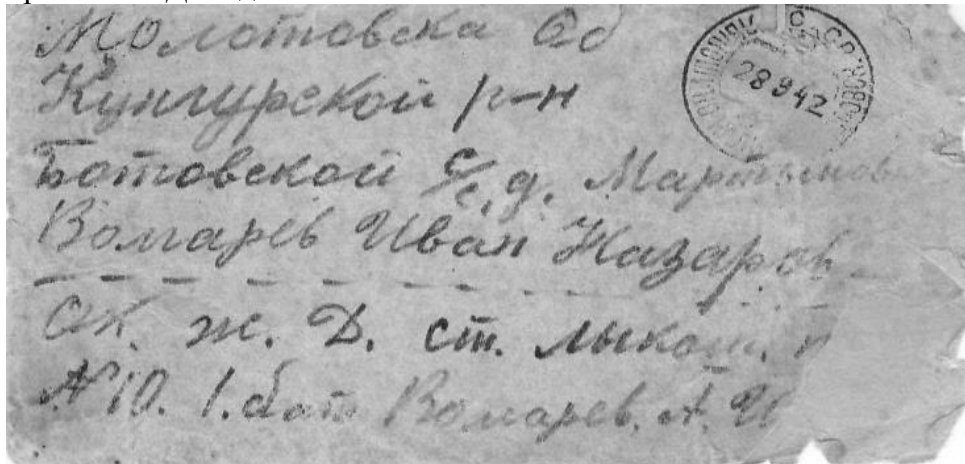 Молотовска Об
Кунгурской р-н
Ботовской с/с, д. Мартынов
Вомарев Иван Назаров
Ок. ж. Д. ст. лыкош. п
N 10. 1. бат Вомарев. А. И
28 9 42